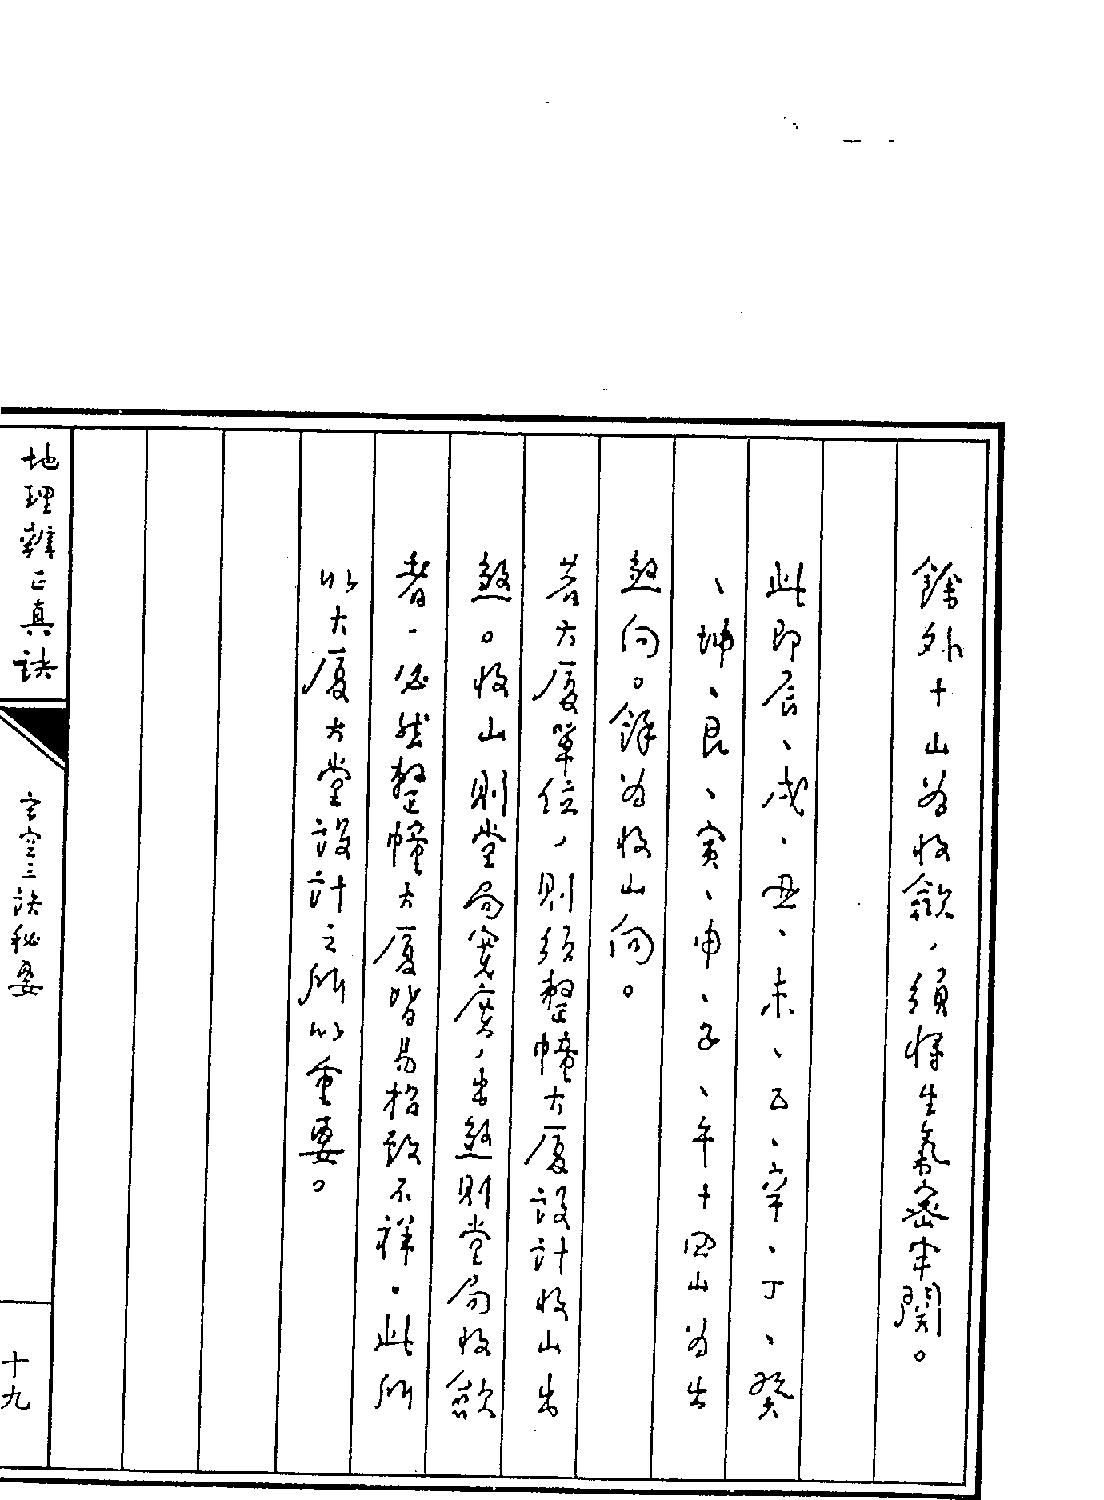 餘外十山為收歛，須將生氣密牢關。
此即辰、戌、丑、未、乙、辛、丁、癸
、坤、艮、寅、申、子、午十四山為出
煞向。餘為收山向。
若大廈單位，則須整幢大廈設計收山出
煞。收山則堂局寬廣，出煞則堂局收歛
者，必然整幢大廈皆易招致不祥。此所
以大廈大堂設計之所以重要。
地理辨正真訣
玄空三訣秘要
十九